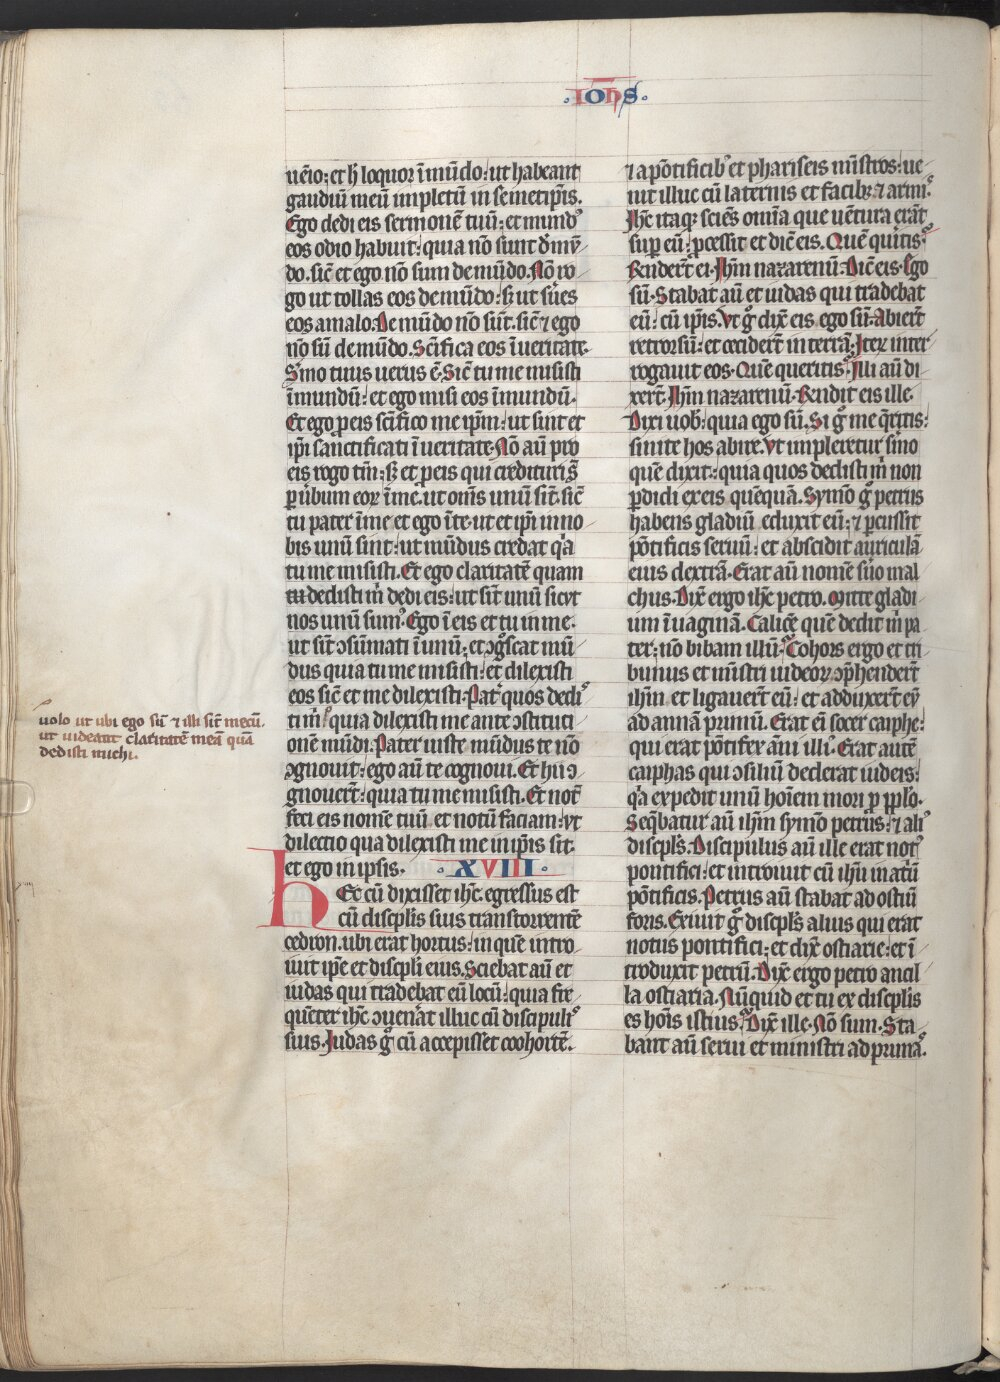 .IOħS.
uēio: et h̄ loquor ī mūdo: ut habeant
gaudiū meū impletū in semetip̄is.
Ego dedi eis sermonē tuū: et mund᷒
eos odio habuit: quia nō sunt d̄ mū
do. sic̄ et ego nō sum de mūdo. Nō ro
go ut tollas eos de mūdo: sꝫ ut s̄ues
eos a malo. De mūdo nō sūt. sic̄ ⁊ ego
nō sū de mūdo. Sc̄ifica eos ī ueritate.
S̄mo tuus uerus ē. Sic̄ tu me misisti
ī mundū: et ego misi eos ī mundū.
Et ego ꝑ eis sc̄ifico me ip̄m: ut sint et
ip̄i sanctificati ī ueritate. Nō aū pro
eis rogo tm̄: sꝫ et ꝑ eis qui credituri s̄
ꝑ ūbum eoꝝ ī me. ut om̄s unū sīt. sic̄
tu pater ī me et ego ī te. ut et ip̄i in no
bis unū sint: ut mūdus credat qͣa
tu me misisti. Et ego claritatē quam
tu dedisti m̄ dedi eis: ut sīt unū sicut
nos unū sumꝰ. Ego ī eis et tu in me.
ut sīt ꝯsūmati ī unū: et ꝯḡscat mū
dus quia tu me misisti: et dilexisti
eos sic̄ et me dilexisti. Pat̄ quos dedi
ti m̄ quia dilexisti me ante ꝯstituti
onē mūdi. Pater iuste mūdus te nō
ꝯgnouit: ego aū te cognoui. Et hii ꝯ
gnouer̄t: quia tu me misisti. Et not̄
feci eis nomē tuū et notū faciam: ut
dilectio qua dilexisti me in ip̄is sit.
et ego in ipsis. .XVIII.
HEc cū dixisset ihc̄. egressus est
cū discipl̄is suis trans torrentē
cedron. ubi erat hortus: in quē intro
iuit ip̄e et discipl̄i eius. Sciebat aū et
iudas qui tradebat eū locū: quia fre
quēter ihc̄ ꝯuen̄at illuc cū discipuliꝰ
suis. Iudas g̊ cū accepisset coohortē.
uolo ut ubi ego sū ⁊ illi sīt mecū.
ut uideant claritatē meā quā
dedisti michi.
⁊ a pōtificibꝰ et phariseis mīstros: ue
nit illuc cū laternis et facibꝫ ⁊ armiꝰ.
Ihc̄ itaqꝫ sciēs om̄ia que uētura erāt
suꝑ eū: ꝓcessit et dic̄ eis. Quē qūitis.
Rēnder̄t ei. Ihm̄ nazarenū. Dic̄ eis. Ego
sū. Stabat aū et iudas qui tradebat
eū: cū ip̄is. Vt g̊ dix̄ eis ego sū. Abier̄t
retrorsū: et cecider̄t in terrā. Iteꝝ inter
rogauit eos. Quē queritis. Illi aū di
xer̄t. Ihm̄ nazarenū. Rēndit eis ille.
Dixi uob̄: quia ego sū. Si g̊ me q̄ritis:
sinite hos abire. Vt impleretur s̄mo
quē dixit: quia quos dedisti m̄ non
ꝑdidi ex eis quēquā. Symō g̊ petrus
habens gladiū eduxit eū: ⁊ ꝑcussit
pōtificis seruū: et abscidit auriculā
eius dextrā. Erat aū nomē s̄uo mal
chus. Dix̄ ergo ihc̄ petro. Mitte gladi
um ī uaginā. Calicē quē dedit m̄ pa
ter: nō bibam illū. Cohors ergo et tri
bunus et mīstri iudeoꝝ ꝯp̄hender̄t
ihm̄ et ligauer̄t eū: et adduxer̄t eū
ad annā primū. Erat eī socer caiphe:
qui erat pōtifex āni illiꝰ. Erat autē
caiphas qui ꝯsiliū dederat iudeis:
qͣa expedit unū hoīem mori ꝓ pplo.
Seq̄batur aū ihm̄ symō petrus: ⁊ aliꝰ
discipl̄s. Discipulus aū ille erat notꝰ
pontifici: et introiuit cū ihū in atriū
pōtificis. Petrus aū stabat ad ostiū
foris. Exiuit g̊ discipl̄s alius qui erat
notus pontifici: et dix̄ ostiarie: et ī
troduxit petrū. Dix̄ ergo petro ancil
la ostiaria. Nūquid et tu ex discipl̄is
es hoīs istius. Dix̄ ille. Nō sum. Sta
bant aū serui et ministri ad prunaꝰ.